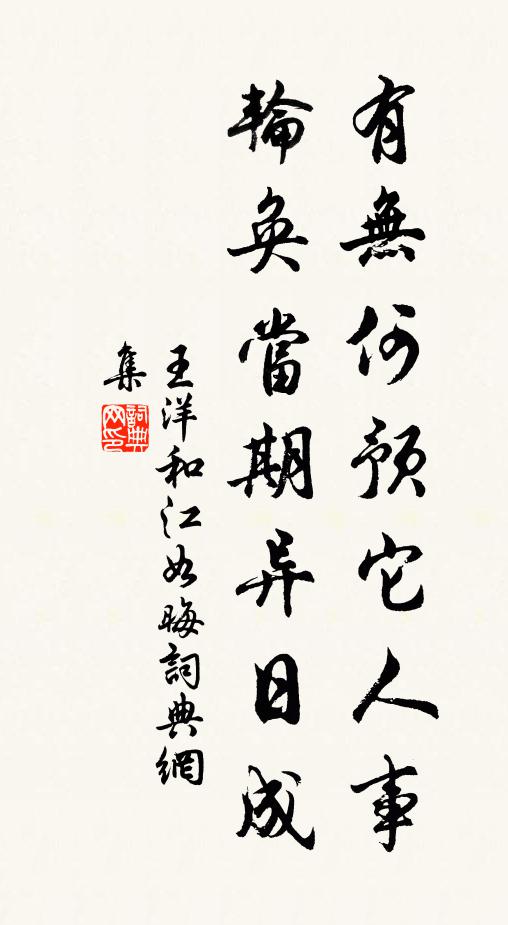 有無何預它人事
輪奐當期异日成
王洋和江如晦詞典網
集
詞典
网印